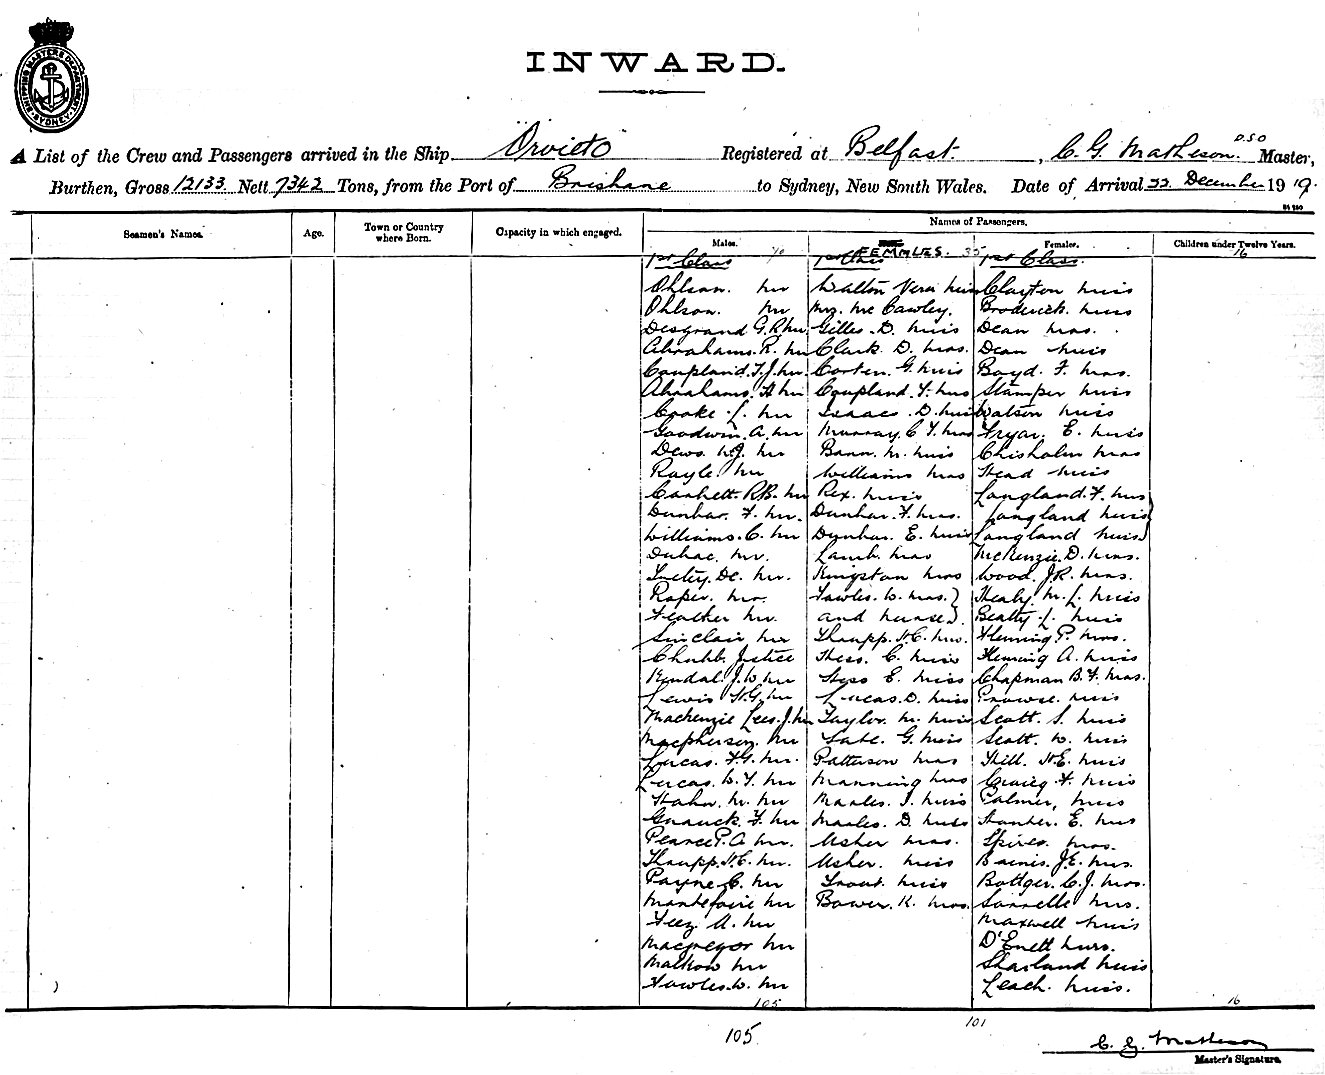 SHIPPING MASTERS DEPARTMENT SYDNEY
INWARD.
A List of the Crew and Passengers arrived in the Ship Orvieto Registered at Belfast, C. G. Matheson. DSO Master,
Burthen, Gross 12133 Nett 7342 Tons, from the Port of Brisbane to Sydney, New South Wales. Date of Arrival 22 December 1919.
Names of Passengers.
Seamen's Names. Age. Town or Country where Born. Capacity in which engaged. Males. Females. Children under Twelve Years.
1st Class 70 1st Class FEMALES. 35 1st Class. 16
Ohlson. Mr Walton Vera Miss Clayton Miss
Ohlson. Mr Mrs. McCawley. Broderick. Miss
Desgrand G.R Mr Gilles. D. Miss Dean Mrs.
Abrahams. R. Mr Clark. D. Mrs. Dean Miss
Coupland. T.J. Mr. Corten. G. Miss Boyd. F. Mrs.
Abrahams. H Mr Coupland. Y. Mrs Stamper Miss
Cooke. L. Mr Isaacs. D. Miss Watson Miss
Goodwin. A. Mr Murray. C Y. Mrs Fryar. E. Miss
Dews. W.J. Mr Bann. M. Miss Chisholm Mrs
Royle. Mr Williams Mrs Head Miss
Corbett. R.B. Mr Rex. Miss Langland. F. Mrs
Dunbar. F. Mr. Dunbar. F. Mrs. Langland Miss
Williams. C. Mr Dunbar. E. Miss Langland Miss
Mr. Lamb. Mrs McKenzie. D. Mrs.
Mr. Kingston Mrs Wood. J.R. Mrs.
Roper. Mr. Fowles. W. Mrs. Healy M. L. Miss
Feather Mr. and nurse Beatty. L. Miss
Sinclair Mr Thrupp. H.C. Mrs. Fleming P. Mrs.
Chubb. Justice Hess. C. Miss Fleming A. Miss
Kendal. J.W. Mr Hess E. Miss Chapman B.F. Mrs.
Lewis H.G. Mr Lucas. D. Miss Prowse. Miss
Mackenzie Lees. J. Mr Taylor. M. Miss Scott. S. Miss
Macpherson. Mr G. Miss Scott. W. Miss
Lucas. F.G. Mr. Patterson Mrs Hill. H.E. Miss
Lucas. W. Y. Mr Manning Mrs Craig. F. Miss
Hahn. M. Mr Marles. I. Miss Palmer, Miss
Gnauck. F. Mr Marles. D. Miss Hunter. E. Mrs
Pearce P. A Mr. Usher Mrs. Spires. Mrs.
Thrupp. H.C. Mr. Usher. Miss J.E. Mrs.
Payne C. Mr Trout. Miss Bottger. C.J. Mrs.
Montefiore Mr Bower. K. Mrs. Mrs.
Feez A. Mr Maxwell Miss
Macgregor Mr Mrs.
Malkow Mr Sharland Miss
Fowles. W. Mr Leach. Miss.
105 16
105 101
C. G. Matheson
Master's Signature.